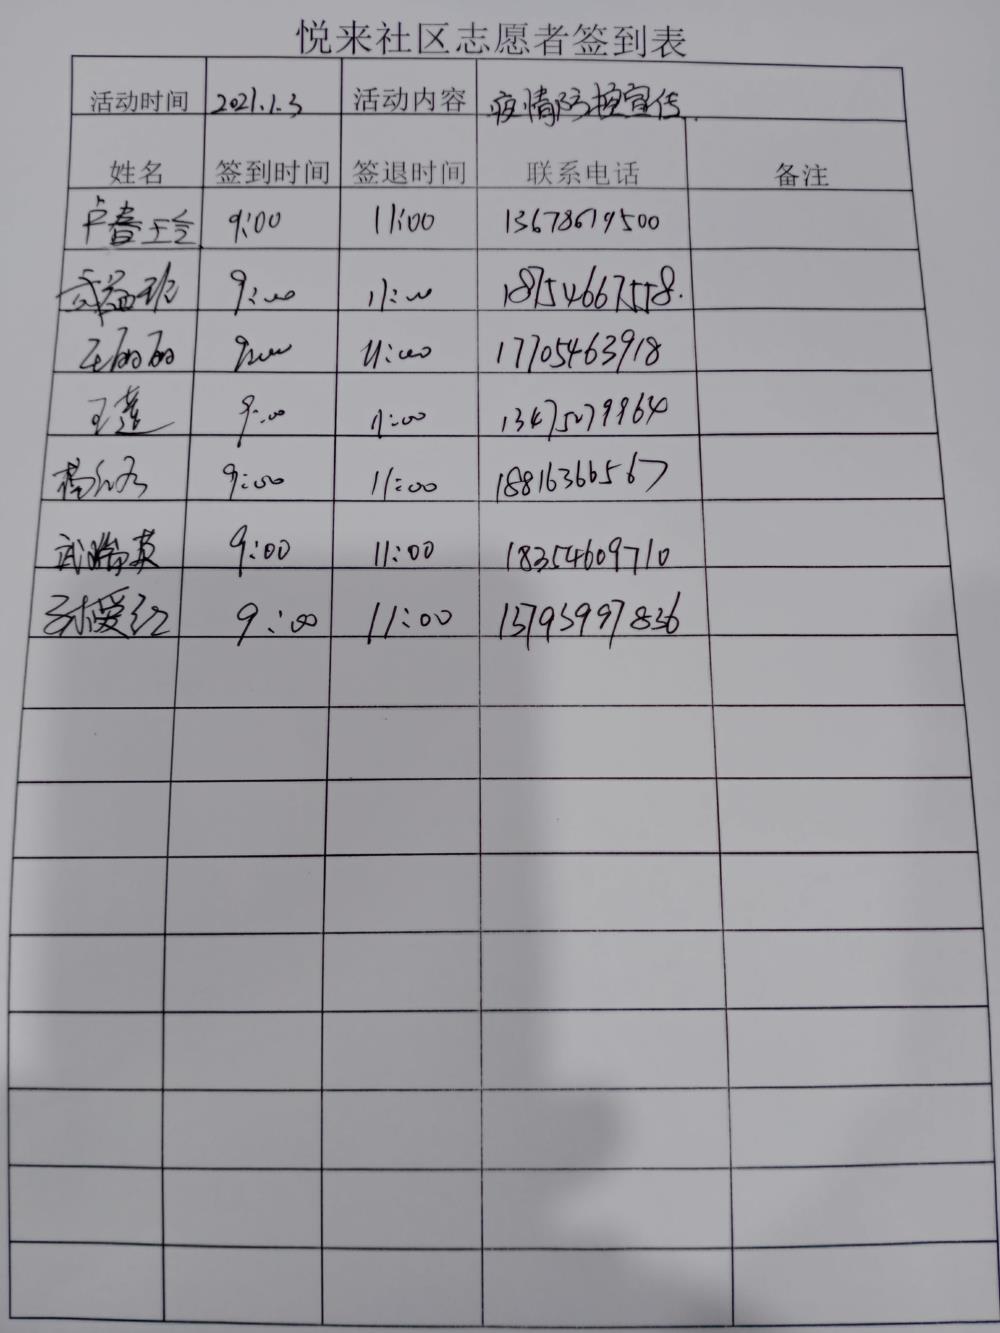 悦来社区志愿者签到表
活动时间 2021.1.3 活动内容 疫情防控宣传
姓名 签到时间 签退时间 联系电话 备注
9:00 11:00 13678619500
9:00 11:00 18754667558.
王丽丽 9:00 11:00 17705463918
王莲 9:00 11:00 13475079964
9:00 11:00 18816366567
武瑞英 9:00 11:00 18354609710
孙爱红 9:00 11:00 13793997836